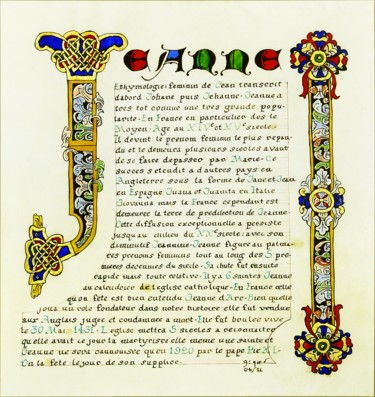 JEANNE
Ethymologie: feminin de Jean transcrit
dabord Johane puis Jehanne. Jeanne a
tres tot connue une tres grande popu-
larite. En France en particulier des le
Moyen-Age au XIVe et XVe siecle.
Il devint le prenom feminin le plus repan
du et le demeura plusieurs siecles avant
de se faire depasser par Marie. Ce
succes s etendit a d'autres pays en
Angleterre sous la forme de Janet Jean
en Espagne Juana et Juanita en Italie
Giovanna mais la France cependant est
demeuree la terre de predilection de Jeanne.
Cette diffusion exceptionnelle a persiste
jusqu au milieu du XXe siecle avec son
diminutif Jeannine. Jeanne figure au palma-
res prenoms feminins tout au long des 5 pre
mieres decennies du siecle. Sa chute fut ensuite
rapide mais toute relative. Il y a 6 saintes Jeanne
au calendrier de l'eglise catholique. En France celle
qu on fete est bien entendu Jeanne d'Arc. Bien quelle
joua un role fondateur dans notre histoire elle fut vendue
aux Anglais jugee et condamnee a mort. Elle fut brulee vive
le 30 Mai 1431. L eglise mettra 5 siecles a reconnaitre
qu elle avait ce jour la martyrisee elle meme une sainte et
Jeanne ne sera cannonisee qu en 1920 par le pape
On la fete le jour de son supplice.